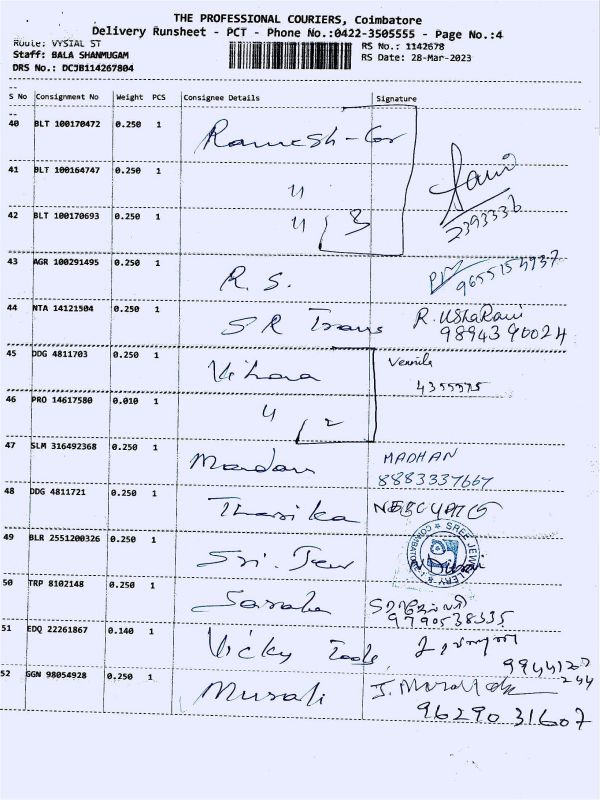 THE PROFESSIONAL COURIERS, Coimbatore
Delivery Runsheet - PCT - Phone No.:0422-3505555 - Page No.:4
Route: VYSIAL ST
RS No.: 1142678
Staff: BALA SHANMUGAM
RS Date: 28-Mar-2023
DRS No.: DCJB114267804
S No Consignment No Weight PCS Consignee Details Signature
40 BLT 100170472 0.250 1 Ramesh-Cor
41 BLT 100164747 0.250 1 "
42 BLT 100170693 0.250 1 " 3
2393336
43 AGR 100291495 0.250 1 R. S. 9655154937
44 NTA 14121504 0.250 1 SR Trans R. UshaRani
9894390024
45 DDG 4811703 0.250 1 Vihara Vennila
4355575
46 PRO 14617580 0.010 1 " 2
47 SLM 316492368 0.250 1 Madan MADHAN
8883337667
48 DDG 4811721 0.250 1 Tharika
49 BLR 2551200326 0.250 1 Sri. Jew SREE JEWELLERY
COIMBATORE
50 TRP 8102148 0.250 1
9790538335
51 EDQ 22261867 0.140 1 Vicky Tools
9944127
244
52 GGN 98054928 0.250 1 Murali
96290 31607